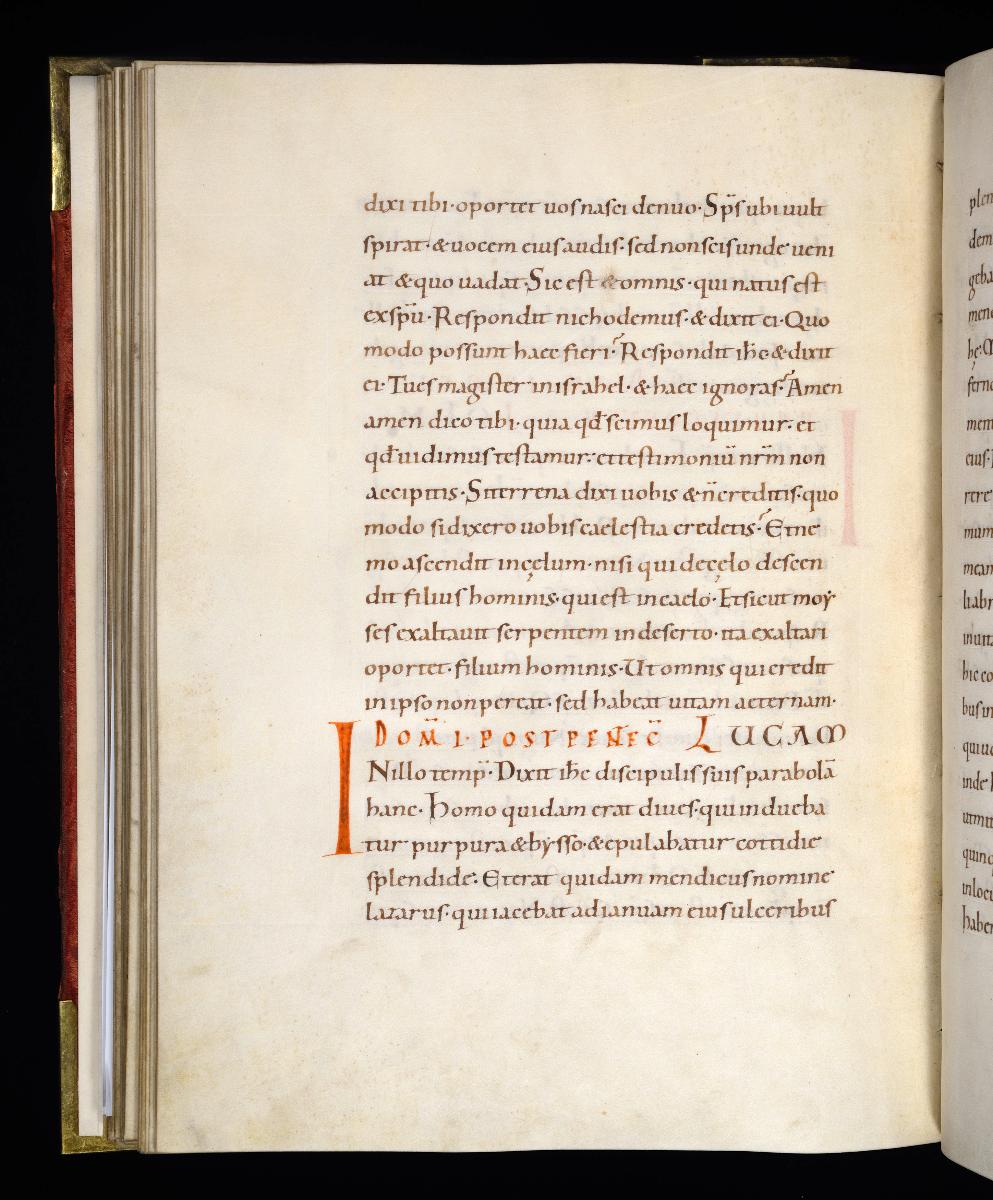 dixi tibi· oportet uos nasci denuo· Sp̅s ubi uult
spirat· & uocem eius audis· sed non scis unde ueni
at & quo uadat· Sic est & omnis· qui natus est
ex sp̅u· Respondit nichodemus· & dixit ei· Quo
modo possunt haec fieri? Respondit ih̅c & dixit
ei· Tu es magister in israhel· & haec ignoras? Amen
amen dico tibi· quia qd̅ scimus loquimur· et
qd̅ uidimus testamur· et testimoniū nr̅m non
accipitis· Si terrena dixi uobis & n̅ creditis· quo
modo si dixero uobis caelestia credetis? Et ne
mo ascendit in cęlum· nisi qui de cęlo descen
dit filius hominis· qui est in caelo· Et sicut moẏ
ses exaltauit serpentem in deserto· ita exaltari
oportet· filium hominis· Ut omnis qui credit
in ipso non pereat· sed habeat uitam aeternam·
DOM̅· I· POST PENTEC̅ LUCAM
INillo temp̅· Dixit ih̅c discipulis suis parabolā
hanc· Homo quidam erat diues· qui indueba
tur purpura & bẏsso· & epulabatur cottidie
splendide· Et erat quidam mendicus nomine
lazarus· qui iacebat ad ianuam eius ulceribus